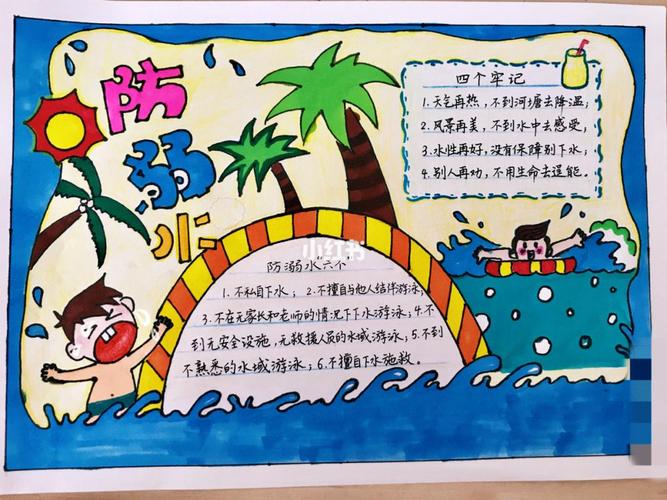 防
溺
水
四个牢记
1.天气再热，不到河塘去降温；
2.风景再美，不到水中去感受，
3.水性再好，没有保障别下水；
4.别人再劝，不用生命去逞能。
小红书
防溺水"六个"
1.不私自下水；2.不擅自与他人结伴游泳；
3.不在无家长和老师的情况下下水游泳；4.不
到无安全设施，无救援人员的水域游泳；5.不到
不熟悉的水域游泳；6.不擅自下水施救。